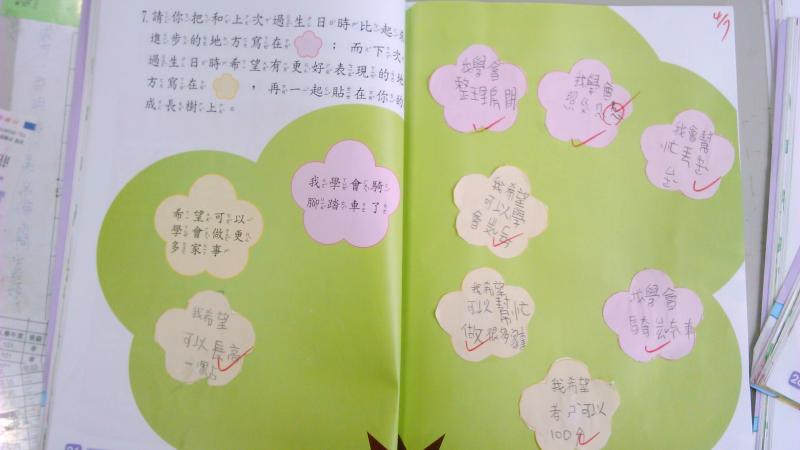 7.請你把和上次過生日時比起來
進步的地方寫在 ；而下次
過生日時希望有更好表現的地
方寫在 ，再一起貼在你的
成長樹上。
希望可以
學會做更
多家事
我學會騎
腳踏車了
我希望
可以長高
一點
4/7
我學會
整理房間
我學會
我會幫
忙丟垃
圾
我希望
可以學
會
我希望
可以幫忙
做很多
我學會
騎 車
我希望
考 可以
100分